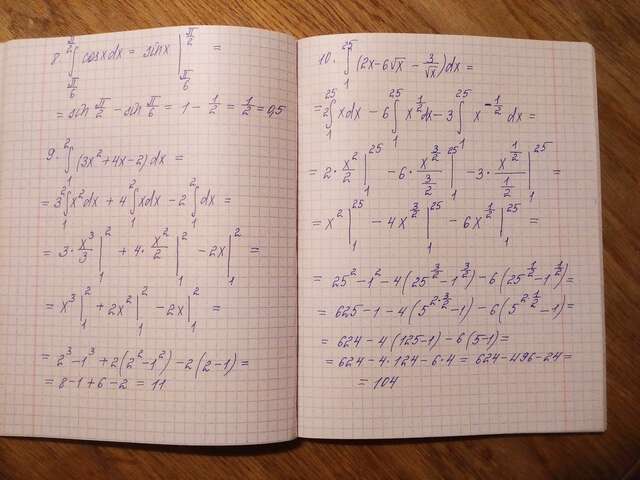 8. ∫_{π/6}^{π/2} cosxdx = sinx |_{π/6}^{π/2} =
= sin π/2 − sin π/6 = 1 − 1/2 = 1/2 = 0,5
9. ∫_1^2 (3x²+4x−2)dx =
= 3∫_1^2 x²dx + 4∫_1^2 xdx − 2∫_1^2 dx =
= 3· x³/3 |_1^2 + 4· x²/2 |_1^2 − 2x |_1^2 =
= x³ |_1^2 + 2x² |_1^2 − 2x |_1^2 =
= 2³−1³+2(2²−1²)−2(2−1)=
= 8−1+6−2 = 11
10. ∫_1^{25} (2x−6√x − 3/√x)dx =
= 2∫_1^{25} xdx − 6∫_1^{25} x^{1/2} dx − 3∫_1^{25} x^{−1/2} dx =
= 2· x²/2 |_1^{25} − 6· x^{3/2}/(3/2) |_1^{25} − 3· x^{1/2}/(1/2) |_1^{25} =
= x² |_1^{25} − 4x^{3/2} |_1^{25} − 6x^{1/2} |_1^{25} =
= 25²−1²−4(25^{3/2}−1^{3/2})−6(25^{1/2}−1^{1/2})=
= 625−1−4(5^{2·3/2}−1)−6(5^{2·1/2}−1)=
= 624−4(125−1)−6(5−1)=
= 624−4·124−6·4= 624−496−24=
= 104